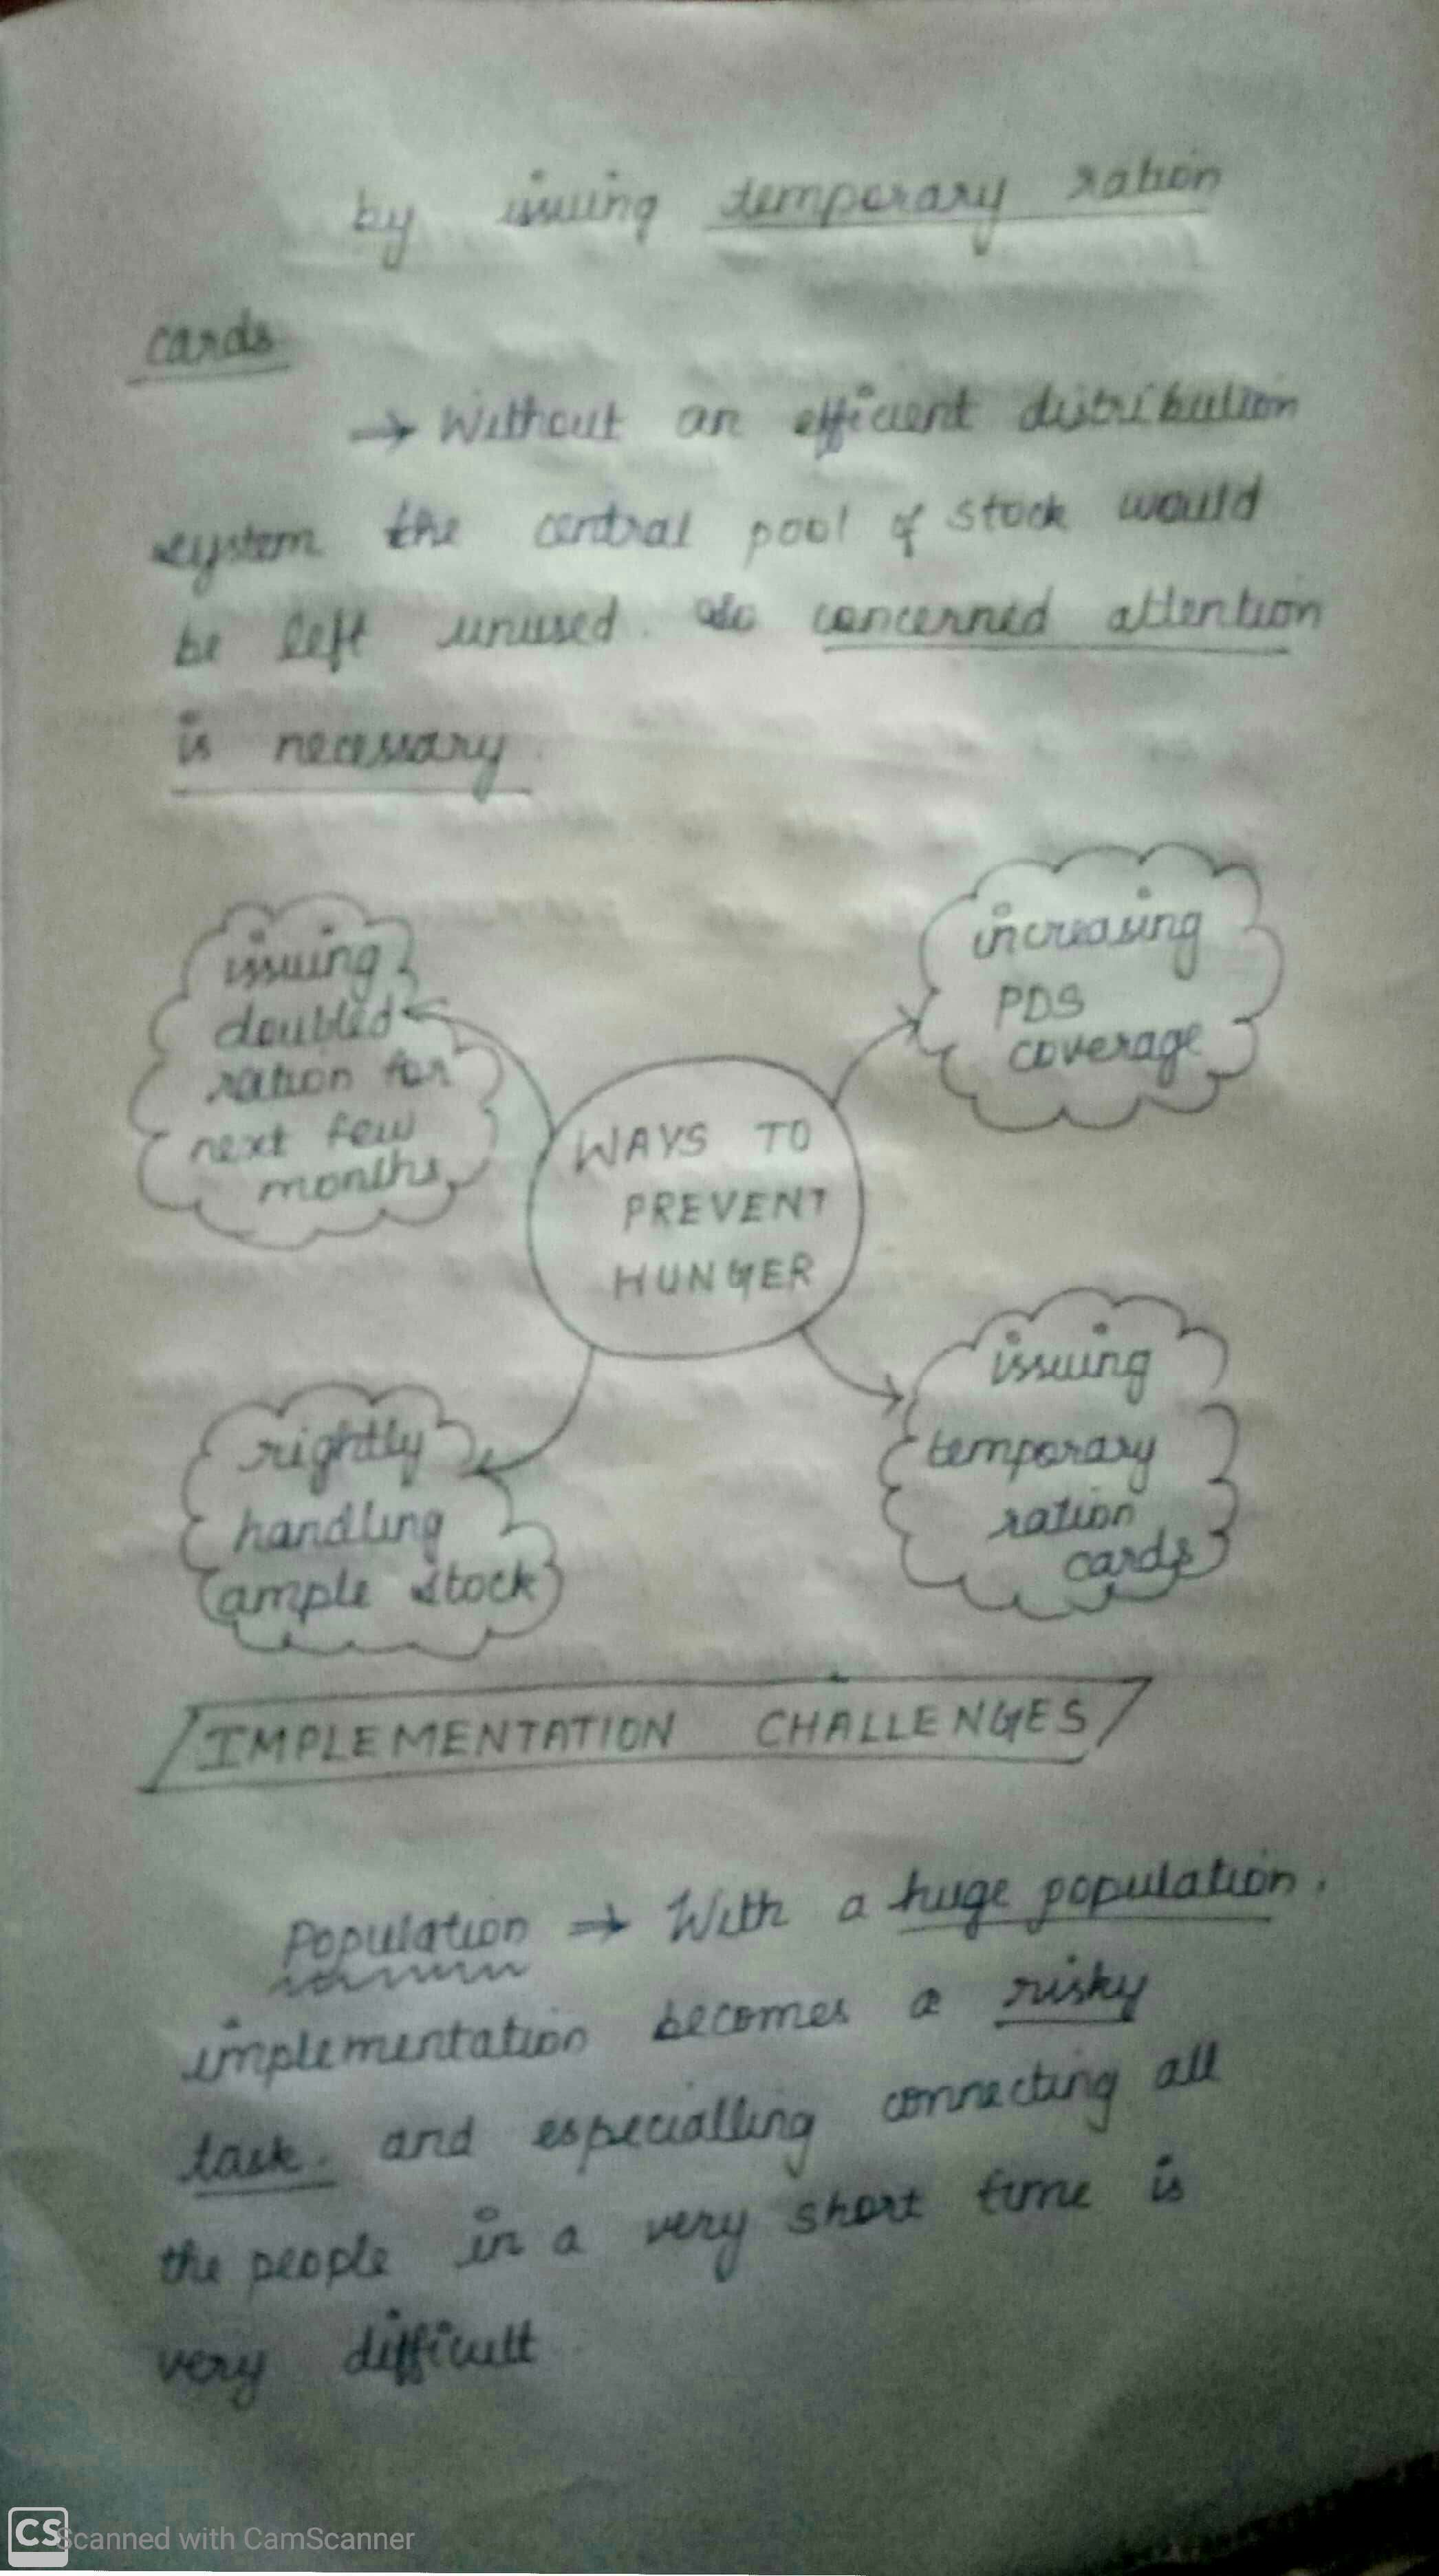 by issuing temporary ration
cards
→ Without an efficient distribution
system the central pool of stock would
be left unused. So concerned attention
is necessary.
issuing
doubled
ration for
next few
months
increasing
PDS
coverage
WAYS TO
PREVENT
HUNGER
rightly
handling
ample stock
issuing
temporary
ration
cards
IMPLEMENTATION CHALLENGES
Population → With a huge population,
implementation becomes a risky
task. and especialling connecting all
the people in a very short time is
very difficult
CS Scanned with CamScanner